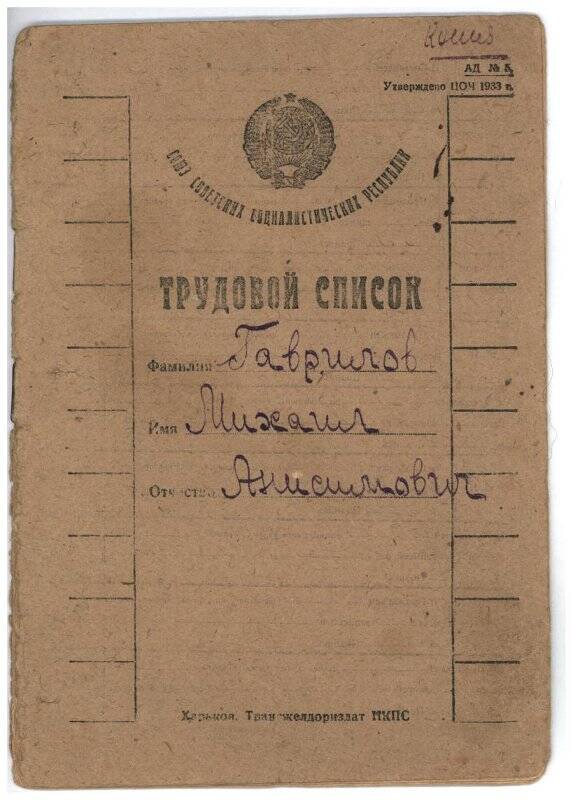 Копия
АД № 5
Утверждено ЦОЧ 1933 г.
СОЮЗ СОВЕТСКИХ СОЦИАЛИСТИЧЕСКИХ РЕСПУБЛИК
ТРУДОВОЙ СПИСОК
Фамилия Гаврилов
Имя Михаил
Отчество Анисимович
Харьков. Трансжелдориздат НКПС